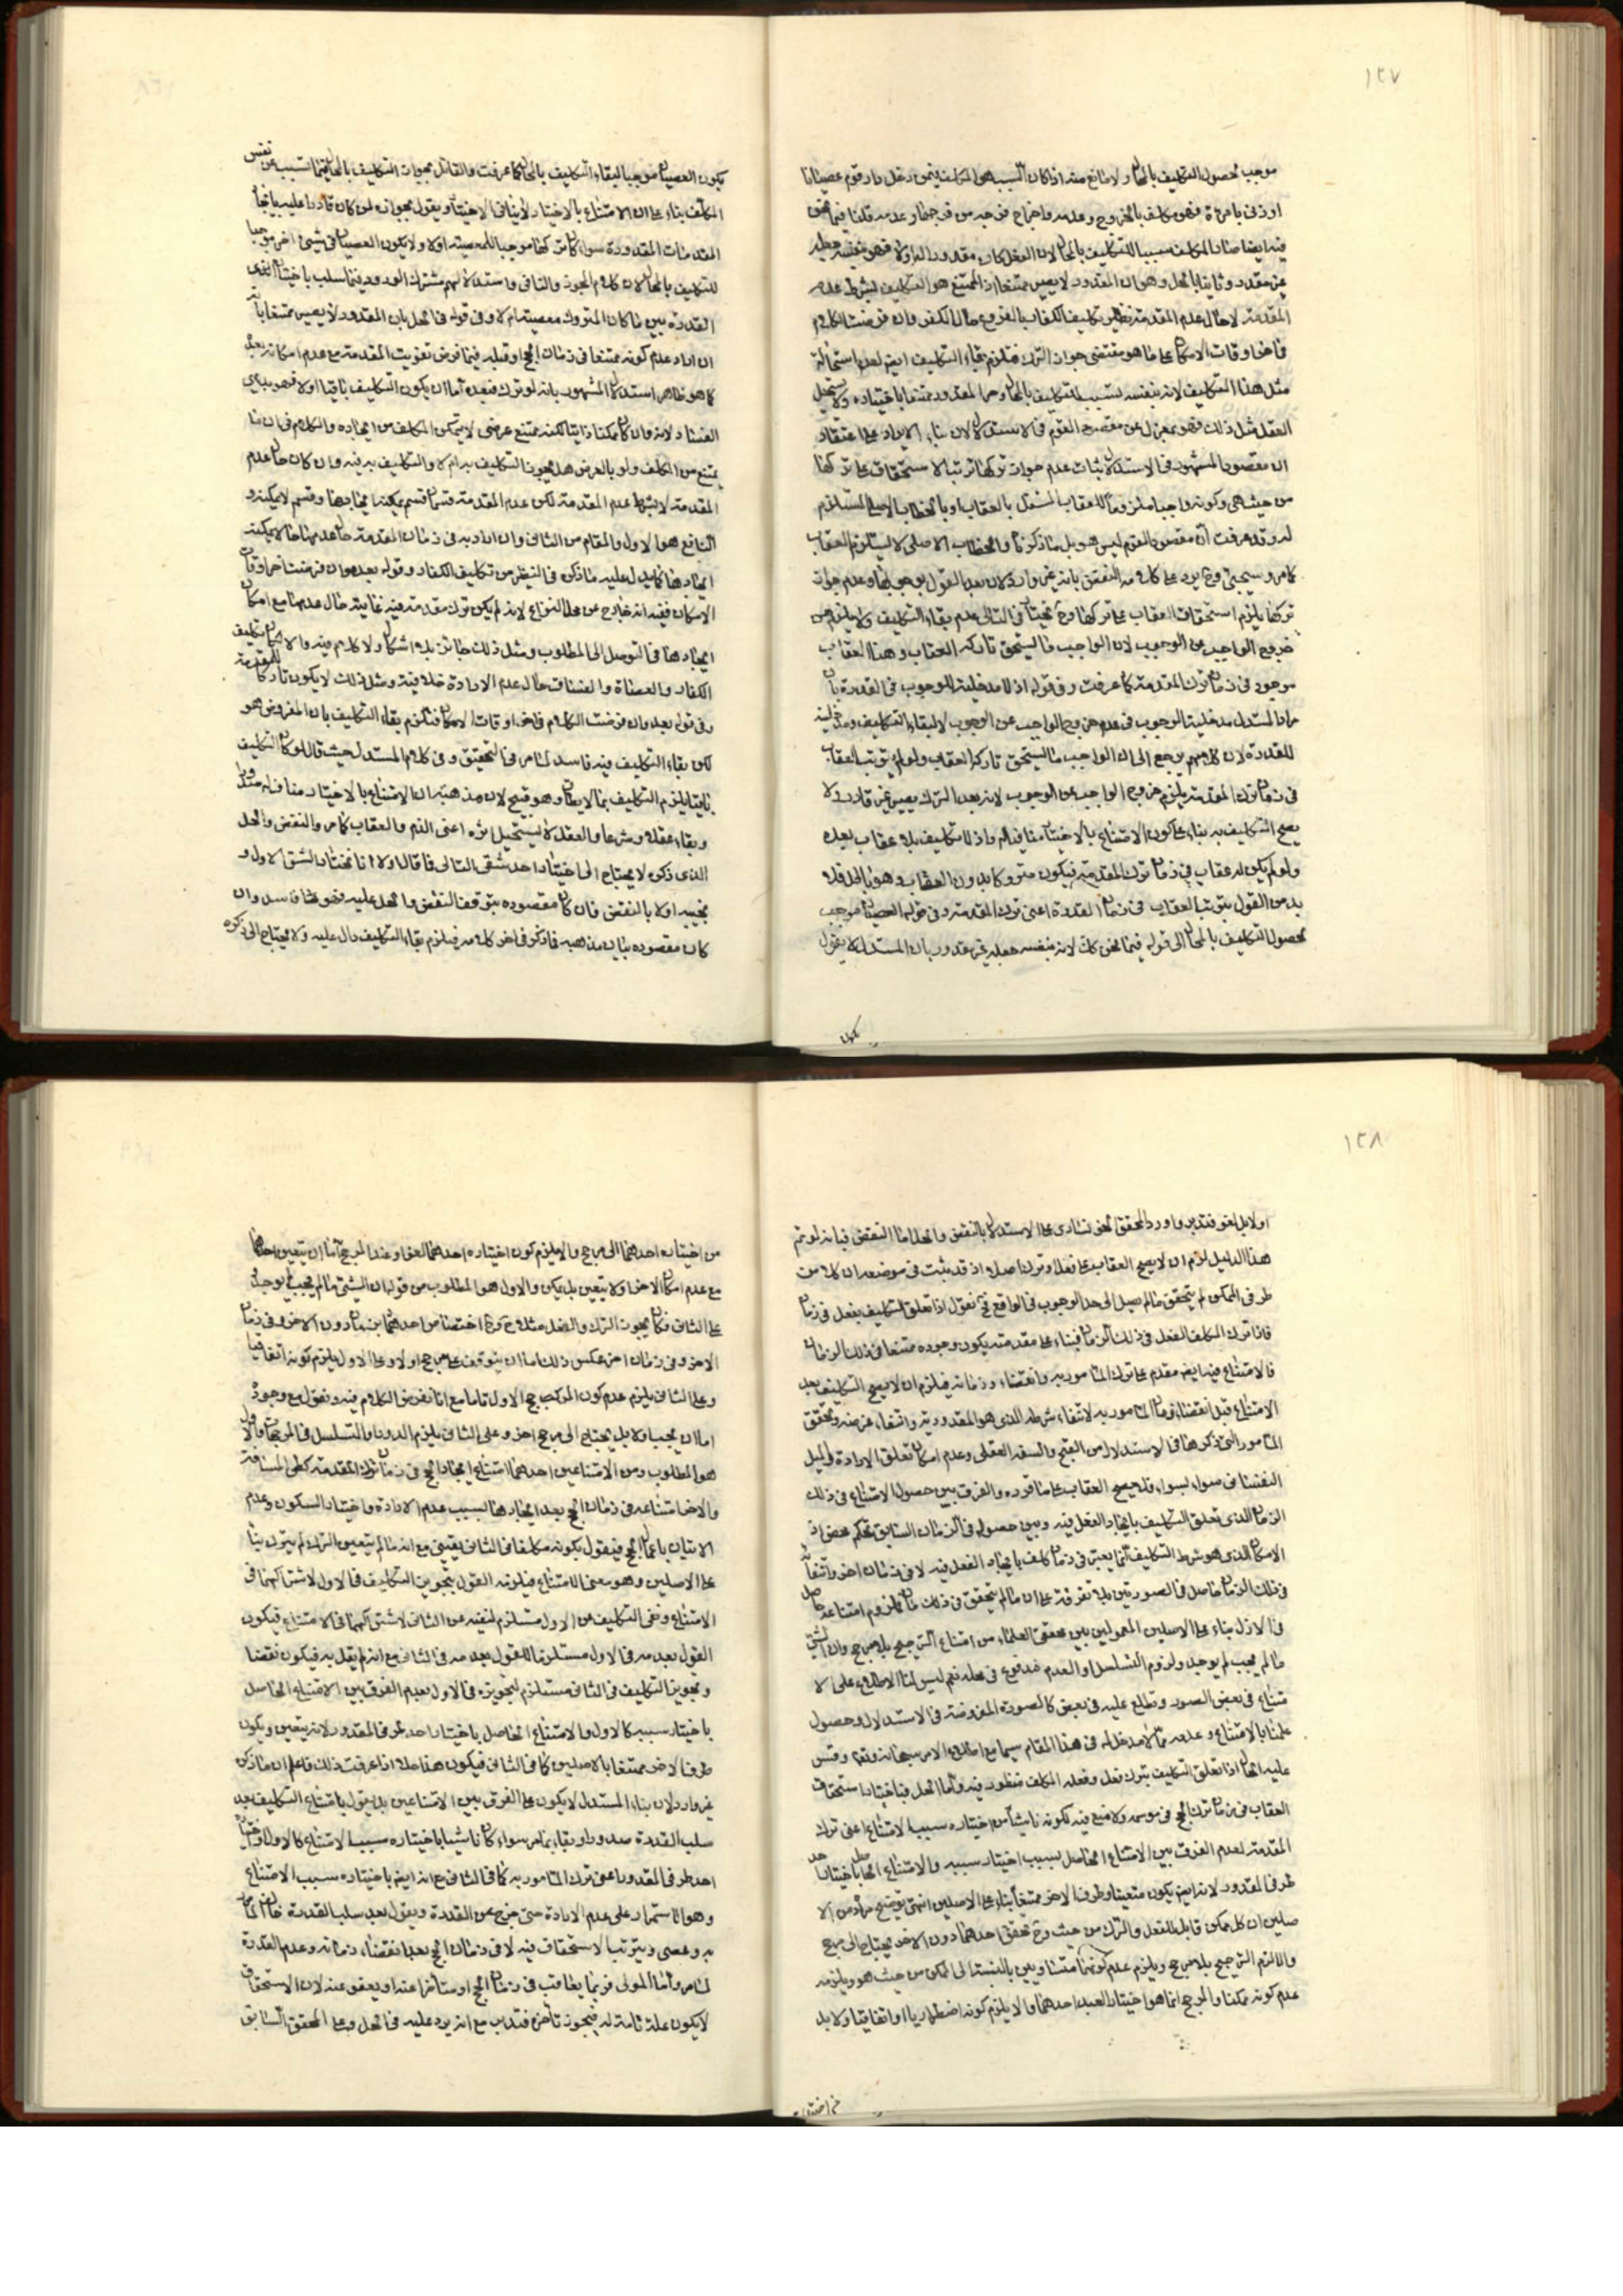 ١٢٧
موجب لحصول التكليف بالمحال ولا مانع منه اذا كان السبب هو المكلف فيمن دخل دار قوم عصيانا
او زنى بامرءة فهو مكلف بالخروج وعدمه واخراج فرجه من فرجها وعدمه قلنا فيما نحن
فيه ايضا صار المكلف سببا للتكليف بالمحال لان الفعل كان مقدورا له اولا فهو بنفسه جعله
غير مقدور وثانيا بالحل وهو ان المقدور لا يصير ممتنعا اذ الممتنع هو التكليف بشرط عدم
المقدمة لا حال عدم المقدمة نظير تكليف الكفار بالفروع حال الكفر وان فرضت الكلام
في اخر اوقات الامكان على ما هو مقتضى جواز الترك فنلزم بقاء التكليف ايضا لعدم استحالة
مثل هذا التكليف لانه بنفسه تسبب للتكليف بالمحال وجعل المقدور ممتنعا باختياره ولا يستحيل
العقل مثل ذلك فهو بمعزل عن مقصود القوم في الاستدلال لان بناء الايراد على اعتقاد
ان مقصود المشهور في الاستدلال اثبات عدم جواز تركها ترتب الاستحقاق على تركها
من حيث هي وكونه واجبا ملزوما للعقاب المستقل بالعقاب او بالخطاب الاصلي المستلزم
له وقد عرفت ان مقصود القوم ليس هو بل ما ذكرنا والخطاب الاصلي لا يستلزم العقاب
كما مر وسيجيئ وح يرد على كلامه النقض بانه غير وارد لان بعد القول بوجوبها وعدم جواز
تركها يلزم استحقاق العقاب على تركها وح نختار في التالي عدم بقاء التكليف ولا يلزم من
خروج الواجب عن الوجوب لان الواجب ما يستحق تاركه العقاب وهذا العقاب
موجود في زمان ترك المقدمة كما عرفت وفي قوله اذ لا مدخلية للوجوب في القدرة بان
مراد المستدل مدخلية الوجوب في عدم خروج الواجب عن الوجوب لا لبقاء التكليف ومدخلية
للقدرة لان كلامهم يرجع الى ان الواجب ما يستحق تاركه العقاب ولو لم يترتب العقاب
في زمان ترك المقدمة يلزم خروج الواجب عن الوجوب لانه بعد الترك يصير غير قادر ولا
يصح التكليف به بناء على كون الامتناع بالاختيار منافيا له واذ لا تكليف بلا عقاب بعده
ولو لم يكن له عقاب في زمان ترك المقدمة فيكون متروكا بدون العقاب وهو بالخلافلا
بد من القول بترتب العقاب في زمان القدرة اعنى ترك المقدمة وفي قوله العصيان موجب
لحصول التكليف بالمحال الى قوله فيما نحن كان لانه بنفسه جعله غير مقدور بان المستدل لا يقول
يكون
يكون العصيان موجبا لبقاء التكليف بالمحال كما عرفت والقائل بجواز التكليف بالمحال فيما تسبب عن نفس
المكلف بناء على ان الامتناع بالاختيار لا ينافي الاختيار ويقول بجوازه لمن كان قادرا عليه بايجاد
المقدمات المقدورة سواء كان تركها موجبا للمعصية اولا ولا يكون العصيان في شيئ اخر موجبا
للتكليف بالمحال لان كلام المجوز والنافي واستدلالهم مشترك الورود فيما سلب باختيار الغير
القدرة بين ما كان المتروك معصية ام لا وفي قوله في الحل بان المقدور لا يصير ممتنعا بانه
ان اراد عدم كونه ممتنعا في زمان الحج او قبله فيما فرض تفويت المقدمة مع عدم امكانه بعده
كما هو ظاهر استدلال المشهور بانه لو ترك فبعده اما ان يكون التكليف باقيا اولا فهو بديهي
الفساد لانه وان كان ممكنا ذاتيا لكنه ممتنع عرضي لا يتمكن المكلف من ايجاده والكلام في ان ما
يمتنع من المكلف ولو بالعرض هل يجوز التكليف به ام لا والتكليف به فيه وان كان حال عدم
المقدمة لا بشرط عدم المقدمة لكن عدم المقدمة قسمان قسم يمكننا ايجادها وقسم لا يمكن و
النافع هو الاول والمقام من الثاني وان اراد به في زمان المقدمة حال عدمها حال لا يمكنه
ايجادها كما يدل عليه ما ذكره في التنظير من تكليف الكفار وقوله بعد وان فرضت اخر اوقات
الامكان ففيه انه خارج عن محل النزاع لانه لم يكن ترك مقدمة فيه غايته حال عدمها مع امكان
ايجادها في التوصل الى المطلوب ومثل ذلك جائز بلا اشكال ولا كلام فيه والا لكان تكليف
الكفار والعصاة والفساق حال عدم الارادة خلافية ومثل ذلك لا يكون تاركا للمقدمة
وفي قوله بعد وان فرضت الكلام في اخر اوقات الامكان فنلتزم بقاء التكليف بان المفروض هو
لكن بقاء التكليف فيه فاسد لما مر في التحقيق وفي كلام المستدل حيث قال لو كان التكليف
باقيا يلزم التكليف بما لا يطاق وهو قبيح لان من مذهبه ان الامتناع بالاختيار مناف له
وبقاء عقلا وشرعا والعقل لا يستحيل اثره اعنى الذم والعقاب كما مر والنقض والحل
الذى ذكره لا يحتاج الى اختيار احد شقى التالى فما قال اولا انا نختار الشق الاول و
نجيب اولا بالنقض فان كان مقصوده يتوقف النقض والحل عليه فهو فاسد وان
كان مقصوده بيان مذهبه فما ذكر في اخر كلامه فيلزم بقاء التكليف دال عليه ولا يحتاج الى ذكره
١٢٨
اولا بل لغو فتدبر واورد المحقق الخونسارى على الاستدلال بالنقض والحل اما النقض فبانه لو تم
هذا الدليل لزم ان لا يصح العقاب على فعل او ترك اصلا اذ قد ثبت في موضعه ان كلا من
طرفى الممكن لم يتحقق ما لم يصل الى حد الوجوب في الواقع فح نقول اذا تعلق التكليف بفعل في زمان
فاذا ترك المكلف الفعل في ذلك الزمان فبناء على مقدمته يكون وجوده ممتنعا في ذلك الزمان
فالامتناع فيه ايضا مقدم على ترك المامور به وانقضاء وزمانه فيلزم ان لا يصح التكليف بعد
الامتناع قبل انقضاء زمان المامور به لانتفاء شرطه الذى هو المقدورية وانتفاء غرضه وتحقق
المامور التى ذكرها في الاستدلال من القبح والسفه العقلى وعدم امكان تعلق الارادة والميل
النفسانى سواء بسواء فلا يصح العقاب على ما قرره والفرق بين حصول الامتناع في ذلك
الزمان الذى تعلق التكليف بايجاد الفعل فيه وبين حصوله في الزمان السابق تحكم محض اذ
الامكان الذى هو شرط التكليف انما يعتبر في زمان كلف بايجاد الفعل فيه لا في زمان اخر وانتفائه
في ذلك الزمان حاصل في الصورتين بلا تفرقة على ان ما لم يتحقق في ذلك الزمان فلزوم امتناعه حاصل
في الازل بناء على الاصلين المعمولين بين محققى العلماء من امتناع الترجيح بلا مرجح وان الشئ
ما لم يجب لم يوجد ولزوم التسلسل او القدم مدفوع في محله نعم ليس لنا الاطلاع على الا
متناع في بعض الصور ونطلع عليه في بعض كالصورة المفروضة في الاستدلال وحصول
علمنا بالامتناع وعدمه مما لا مدخل له في هذا المقام سيما مع اطلاع الامر سبحانه وقس
عليه الحال اذا تعلق التكليف بترك فعل وفعله المكلف فنظور فيه واما الحل فباختيار استحقاق
العقاب في زمان ترك الحج في موسمه ولا منع فيه لكونه ناشئا من اختياره سبب الامتناع اعنى ترك
المقدمة لعدم الفرق بين الامتناع الحاصل بسبب اختيار سببه والامتناع الحاصل باختيار احد
طرفى المقدور لانه ايضا يكون متعينا وطرف الاخر ممتنعا بناء على الاصلين انتهى توضيح مراده من الا
صلين ان كل ممكن قابل للفعل والترك من حيث وح تحقق احدهما دون الاخر يحتاج الى مرجح
والا لزم الترجيح بلا مرجح ويلزم عدم كونهما متساويين بالنسبة الى الممكن من حيث هو ويلزمه
عدم كونه ممكنا والمرجح انما هو اختيار العبد احدهما والا يلزم كونه اضطراريا او اتفاقيا ولا بد
من اختيار
من اختياره احدهما الى مرجح والا يلزم كون اختياره احدهما لغوا وعند المرجح اما ان يتعين احدهما
مع عدم امكان الاخر اولا يتعين بل يمكن والاول هو المطلوب من قوله ان الشئ ما لم يجب لم يوجد
على الثانى فكان يجوز الترك والفعل مثلا ح فرضا اختصاص احدهما بزمان دون الاخر وفي زمان
الاخر وفي زمان اخر عكس ذلك اما ان يتوقف على مرجح اولا وعلى الاول يلزم كونه اتفاقيا
وعلى الثانى يلزم عدم كون المرجح الاول تاما مع انا نفرض الكلام فيه ونقول مع وجوده
اما ان يجب اولا بل يحتاج الى مرجح اخر وعلى الثانى يلزم الدور او التسلسل في المرجحات والاول
هو المطلوب ومن الامتناعين احدهما امتناع ايجاد الحج في زمان ترك المقدمة كطى المسافة
والاخر امتناعه في زمان الحج بعد ايجادها بسبب عدم الارادة واختيار السكون وعدم
الاتيان باعمال الحج فيقول بكونه مكلفا في الثانى يعنى مع انه ما لم يتعين الترك لم يترك بناء
على الاصلين وهو معنى الامتناع فيلزمه القول بتجويز التكليف في الاول لاشتراكهما في
الامتناع ونفى التكليف عن الاول مستلزم لنفيه عن الثانى لاشتراكهما في الامتناع فيكون
القول بعدمه في الاول مستلزما للقول بعدمه في الثانى مع انه لم يقل به فيكون نقضا
وتجويز التكليف في الثانى مستلزم لتجويزه في الاول بعدم الفرق بين الامتناع الحاصل
باختيار سببه كالاول والامتناع الحاصل باختيار احد طرفى المقدور لانه يتعين ويكون
طرف الاخر ممتنعا بالاصلين كما في الثانى فيكون هذا حلا اذا عرفت ذلك فاعلم ان ما ذكره
غير وارد لان بناء المستدل لا يكون على الفرق بين الامتناعين بل يقول بامتناع التكليف بعد
سلب القدرة صدورا وبقاء بما مر سواء كان ناشيا باختياره سبب الامتناع كالاول او اختيار
احد طرفى المقدور اعنى ترك المامور به كما في الثانى مع انه ايضا باختياره سبب الامتناع
وهو الاستمرار على عدم الارادة حتى خرج عن القدرة ويقول بعد سلب القدرة
به وعصى ويترتب الاستحقاق فيه لا في زمان الحج بعد انقضاء زمانه وعدم القدرة
لما مر واما المولى فربما يعاقب في زمان الحج او متاخرا عنه او يعفو عنه لان الاستحقاق
لا يكون علة تامة له فيجوز تأخره فتدبر مع انه يرد عليه في الحل وعلى المحقق السابق